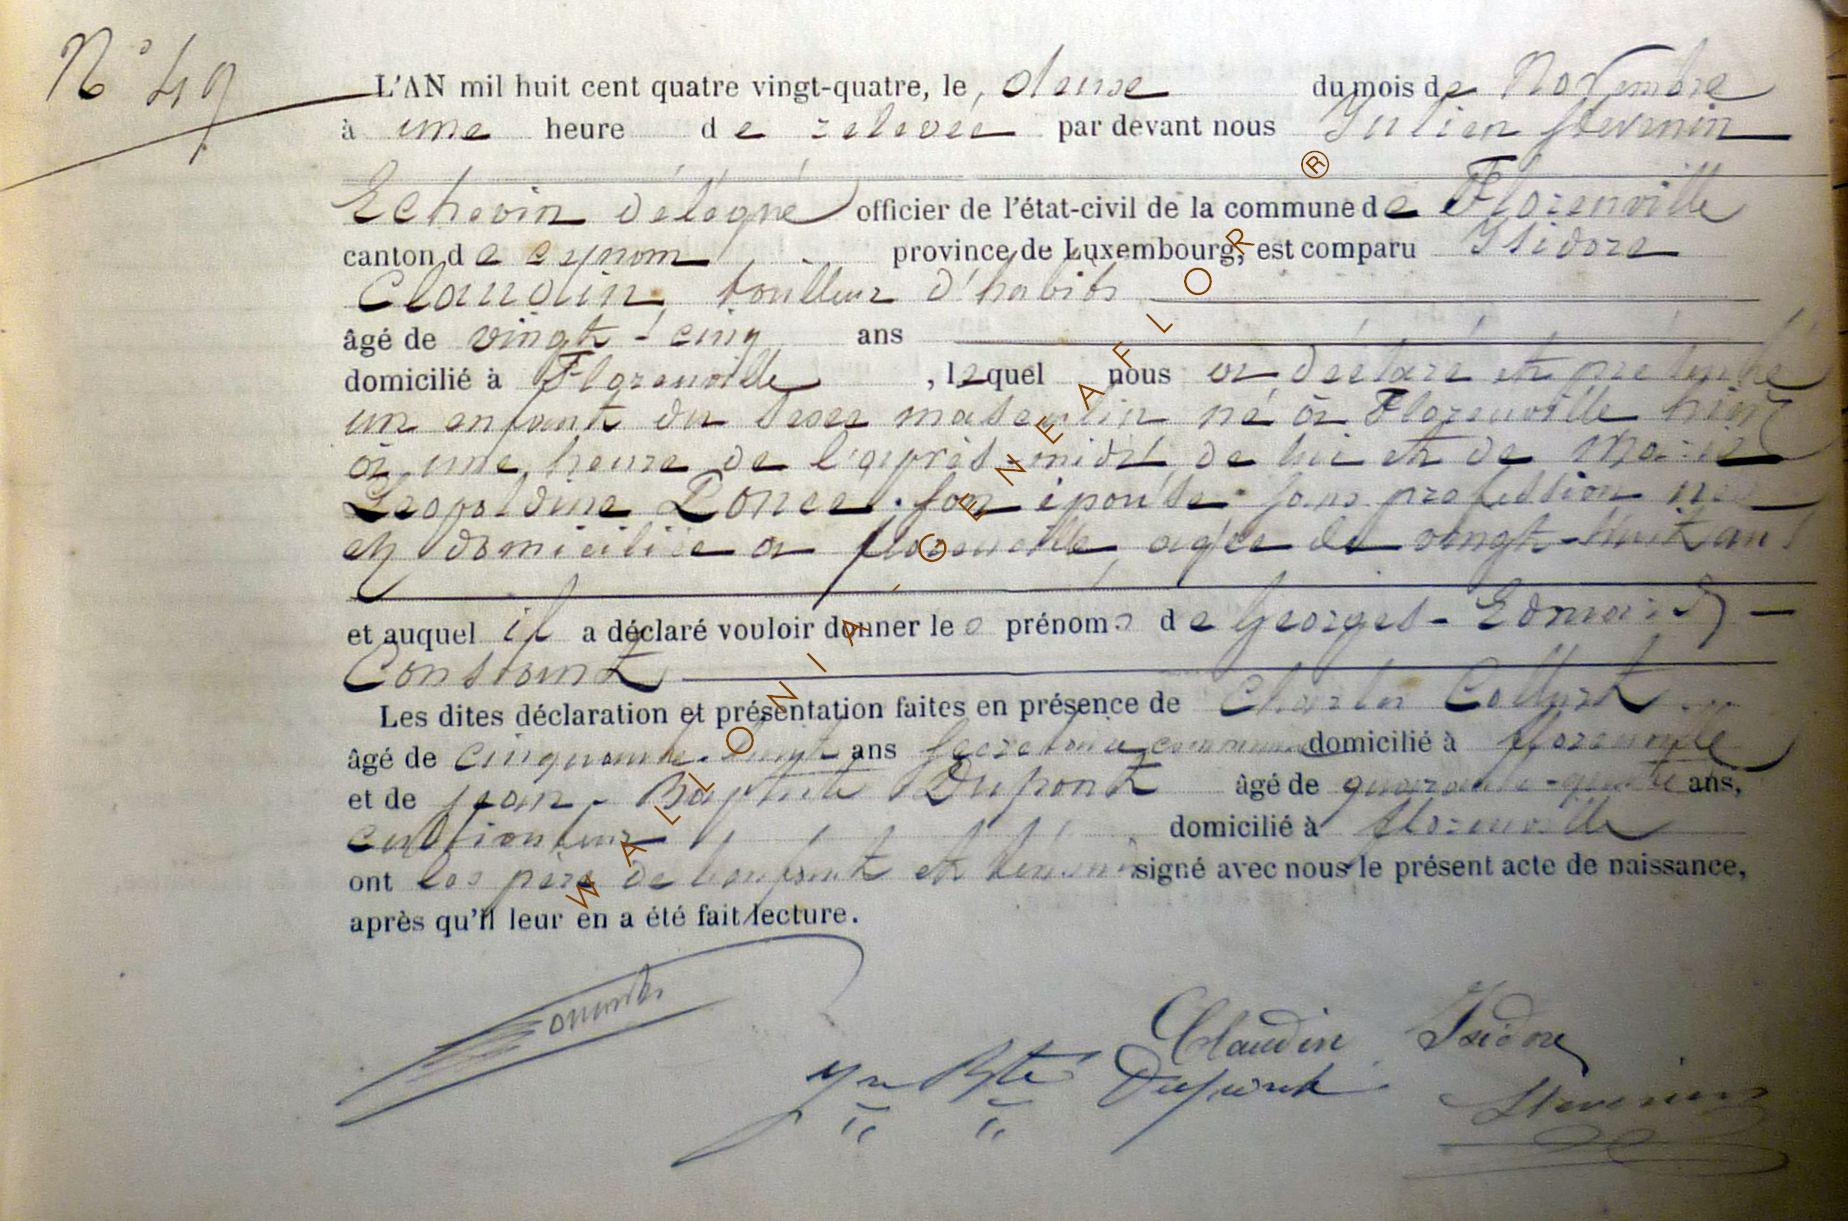 N° 49
L'AN mil huit cent quatre vingt-quatre, le douse du mois de Novembre
à une heure de relevée par devant nous Julien Stevenin
Echevin délégué officier de l'état-civil de la commune de Florenville
canton de province de Luxembourg, est comparu Isidore
Claudin tailleur d'habits
âgé de vingt-cinq ans
domicilié à Florenville, lequel nous a déclaré et présenté
un enfant du sexe masculin né à Florenville hier
à une heure de l'après-midi de lui et de Marie
Leopoldine Poncé son épouse sans profession née
et domiciliée à florenville agée de vingt-huit ans
et auquel il a déclaré vouloir donner les prénoms de Georges-Edmond
Constant
Les dites déclaration et présentation faites en présence de Charles
âgé de cinquante-huit ans Secrétaire communal domicilié à florenville
et de jean-Baptiste Dupont âgé de ans,
cultivateur domicilié à florenville
ont les père de l'enfant et témoins signé avec nous le présent acte de naissance,
après qu'il leur en a été fait lecture.
Claudin Isidore
Jn Bte Dupont
Stevenin
WALLONIA-GENEAFLOR®